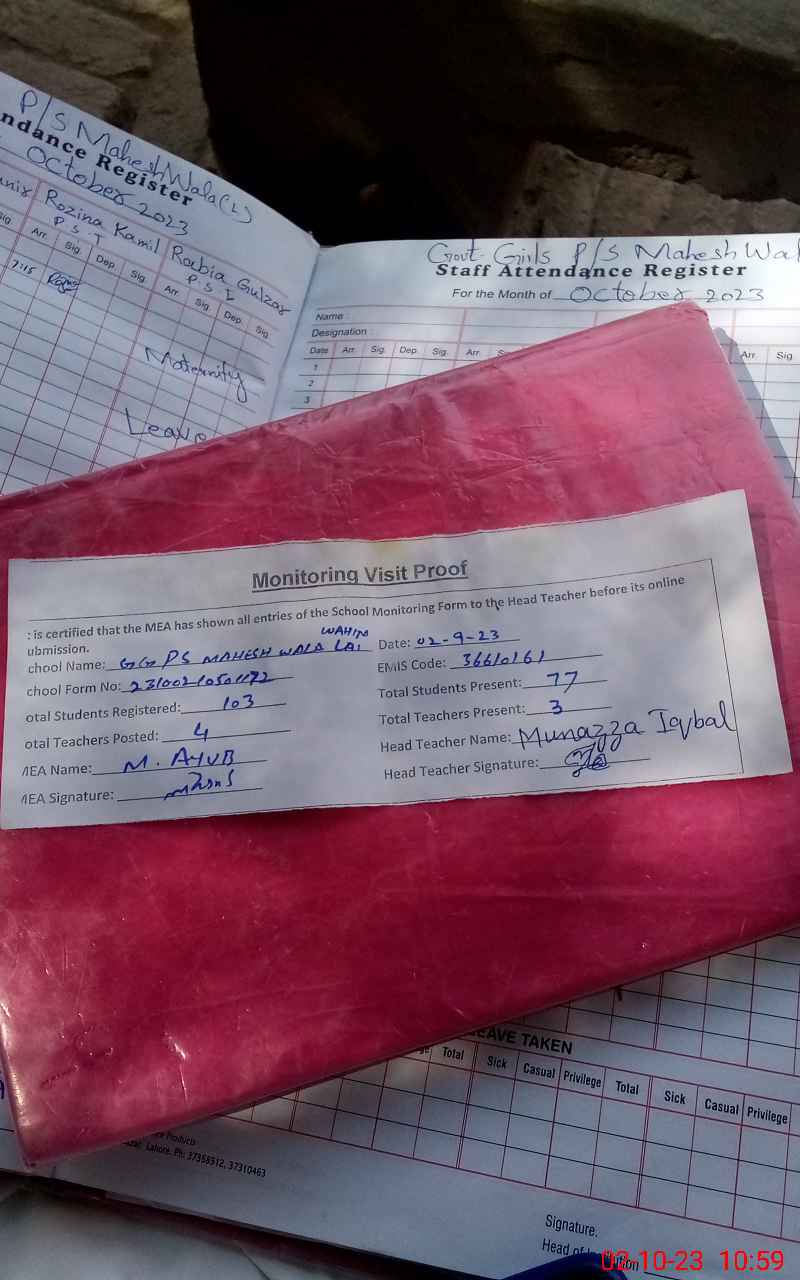 P/S Mahesh Wala (L)
ndance Register
October 2023
Rozina Kamil Rabia Gulzar
P.S.T P.S.T
Arr. Sig. Dep. Sig. Arr. Sig. Dep. Sig.
7:15
Maternity
Leave
Govt Girls P/S Mahesh Wal
Staff Attendance Register
For the Month of October 2023
Name :
Designation :
Date Arr. Sig. Dep. Sig. Arr. Arr. Sig.
1
2
3
Monitoring Visit Proof
: is certified that the MEA has shown all entries of the School Monitoring Form to the Head Teacher before its online
ubmission.
chool Name: GGPS MAHESH WALA LAL WAHIN Date: 02-9-23
chool Form No: EMIS Code: 36610161
otal Students Registered: 103 Total Students Present: 77
otal Teachers Posted: 4 Total Teachers Present: 3
MEA Name: M. AYUB Head Teacher Name: Munazza Iqbal
MEA Signature: Head Teacher Signature:
LEAVE TAKEN
Total Sick Casual Privilege Total Sick Casual Privilege
Products
Lahore. Ph: 37358512, 37310463
Signature.
Head of Institution
02-10-23 10:59